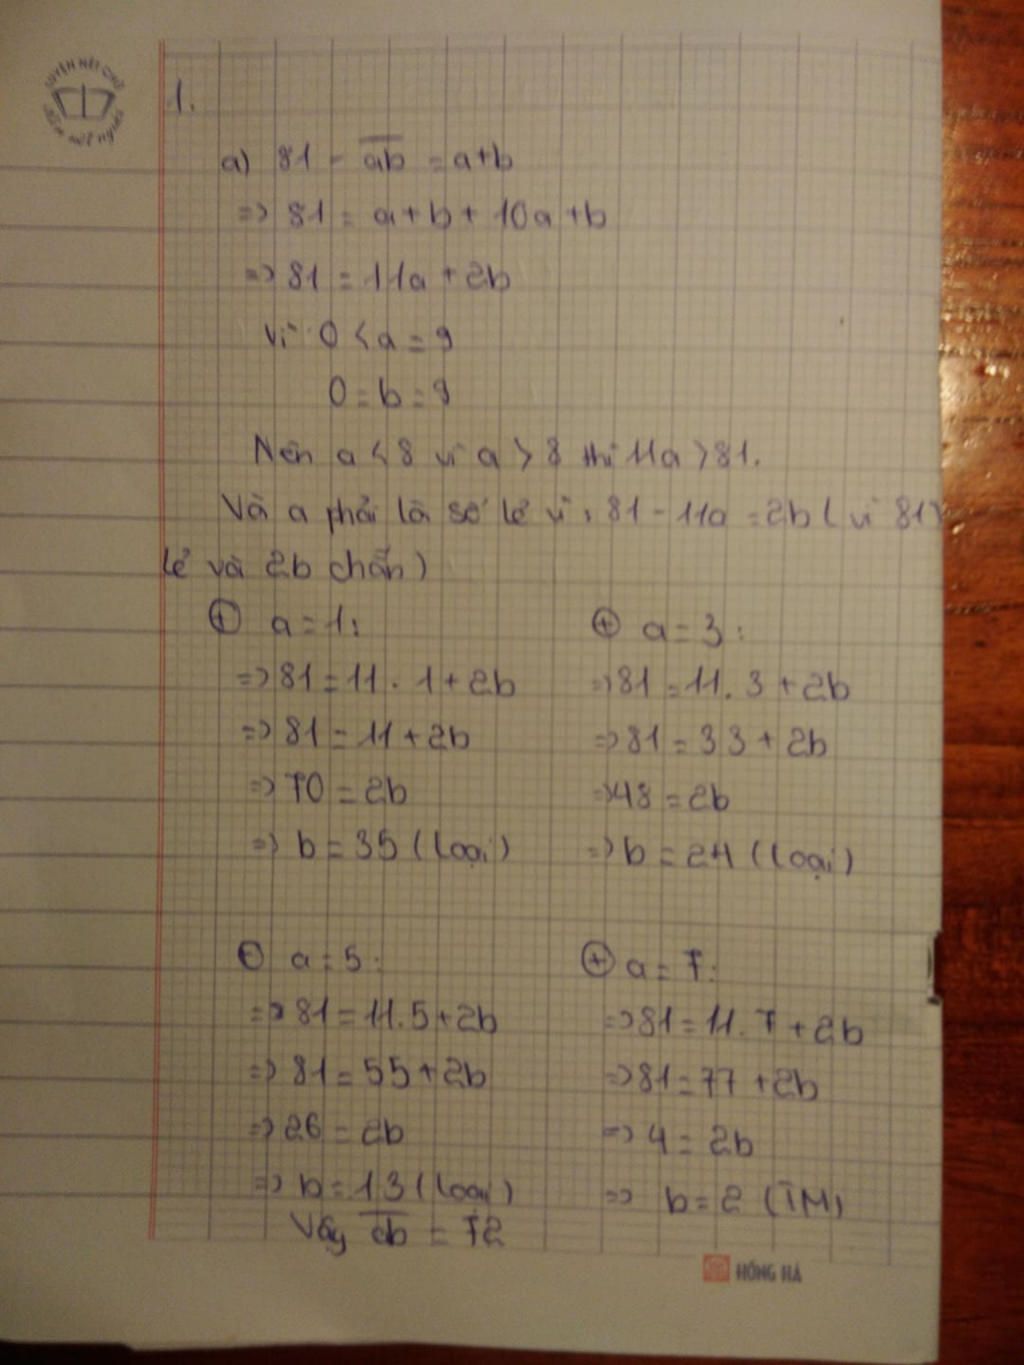 LUYỆN NÉT CHỮ
RÈN NẾT NGƯỜI
1.
a) 81 - ab = a+b
=> 81 = a+b+ 10a +b
=> 81 = 11a + 2b
Vì 0 < a = 9
0 = b = 9
Nên a < 8 vì a > 8 thì 11a > 81.
Và a phải là số lẻ vì : 81 - 11a = 2b ( vì 81
lẻ và 2b chẵn)
+ a = 1:
=> 81 = 11 . 1 + 2b
=> 81 = 11 + 2b
=> 70 = 2b
=> b = 35 (loại)
+ a = 3 :
=> 81 = 11. 3 + 2b
=> 81 = 33 + 2b
=> 48 = 2b
=> b = 24 (loại)
+ a = 5 :
=> 81 = 11.5 + 2b
=> 81 = 55 + 2b
=> 26 = 2b
=> b = 13 (loại)
+ a = 7 :
=> 81 = 11. 7 + 2b
=> 81 = 77 + 2b
=> 4 = 2b
=> b = 2 (TM)
Vậy ab = 72
HỒNG HÀ